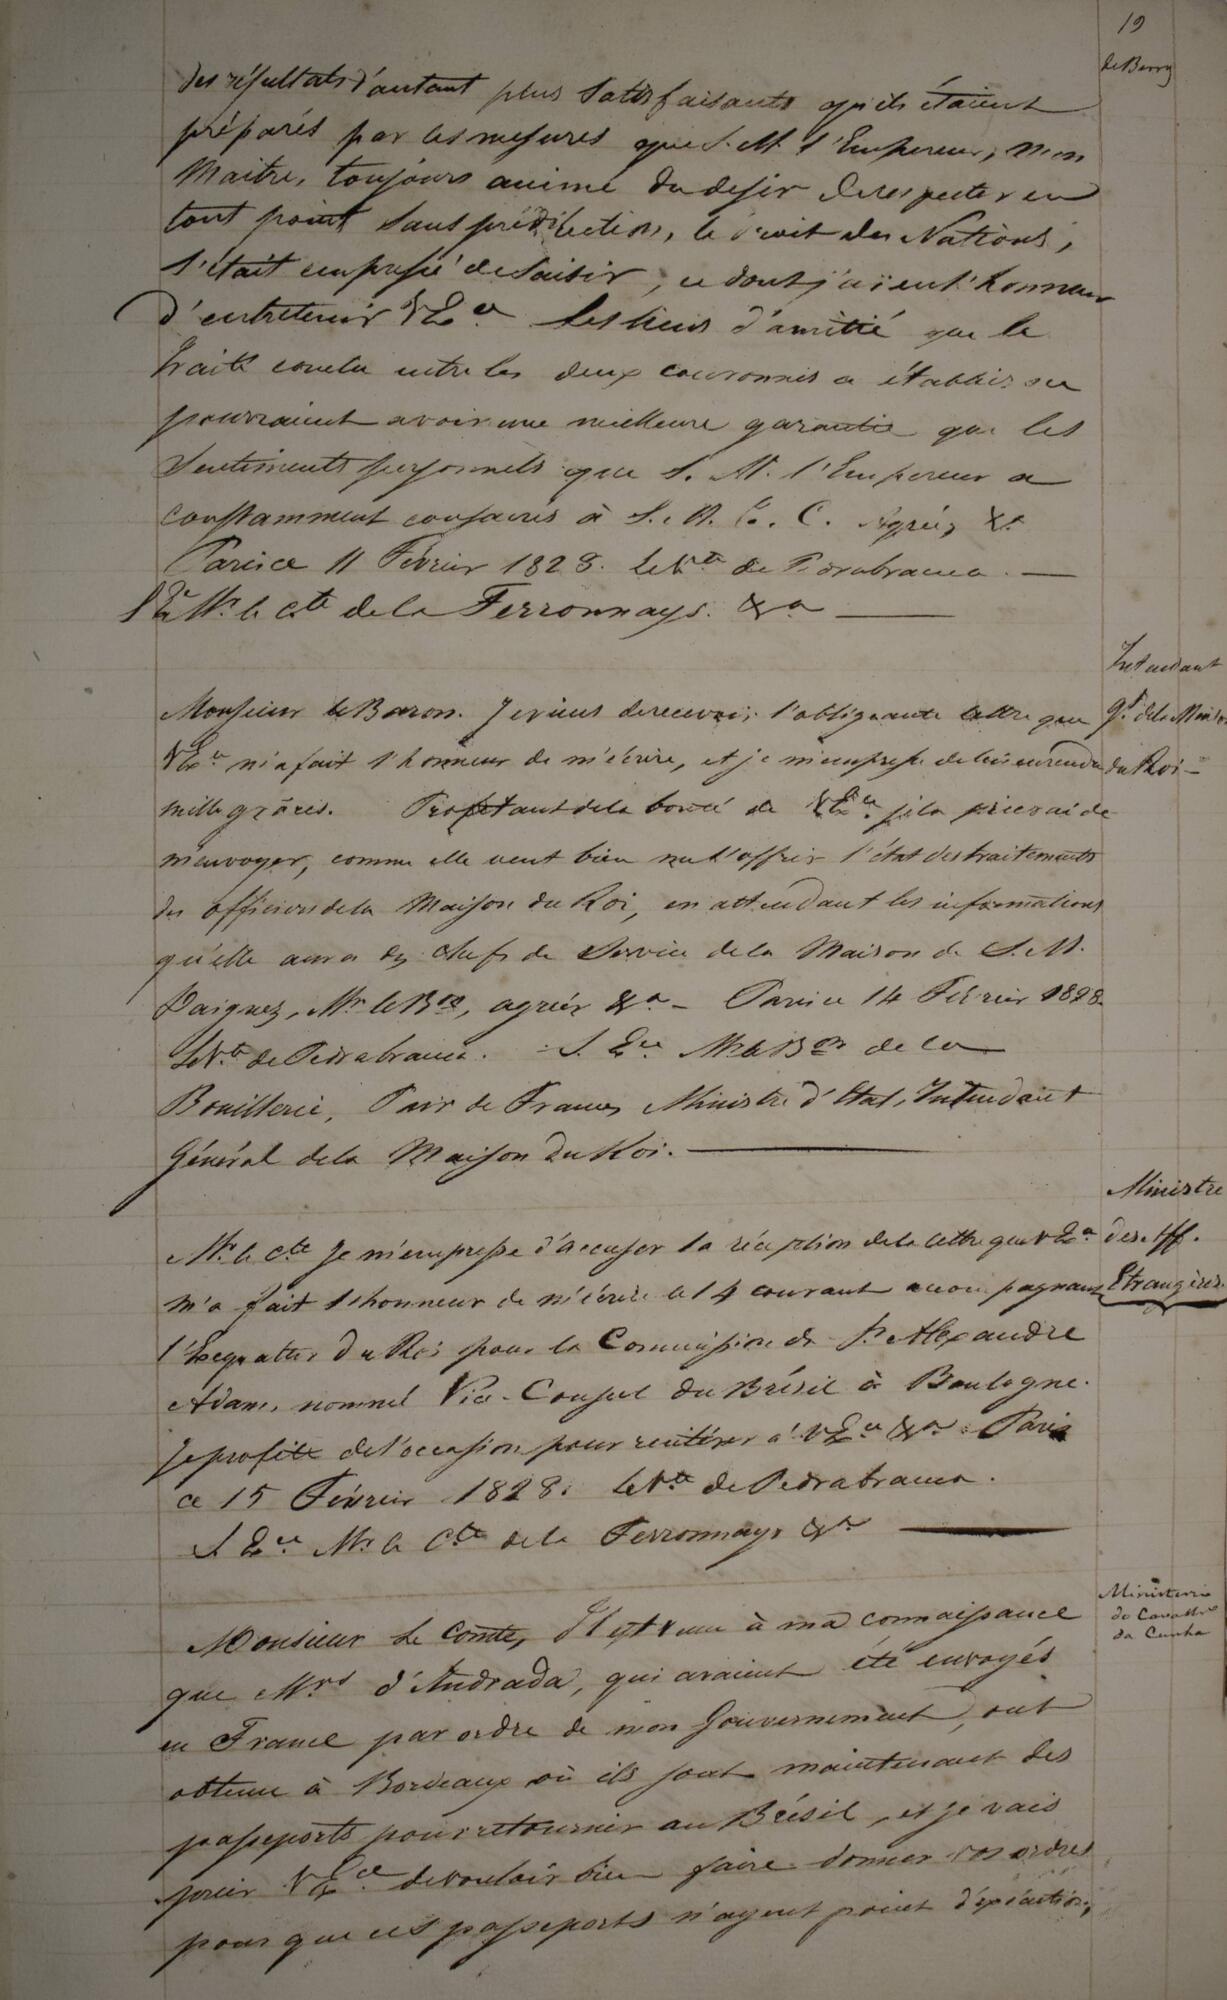 19
de Berry
des résultats d'autant plus satisfaisants qu'ils étaient
préparés par les mesures que S. M. l'Empereur, mon
Maitre, toujours animé du desir de respecter en
tout point sans prédilection, le droit des Nations,
s'était empressé de saisir, ce dont j'ai eu l'honneur
d'entretenir V Exce. Les liens d'amitié que le
traité conclu entre les deux couronnes a établis ne
pourraient avoir une meilleure garantie que les
sentiments personnels que S. M. l'Empereur a
constamment consacrés à S. M. T. C. Agréez &a
Paris ce 11 Février 1828. Le Vte de Pedrabranca. —
S Exce Mr. le Cte de la Ferronnays. &a —
Intendant
Gl de la Maison
du Roi —
Monsieur le Baron. Je viens de recevoir l'obligeante lettre que
V Exce m'a fait l'honneur de m'écrire, et je m'empresse de lui en rendre
mille grâces. Profitant de la bonté de V Exce je la prierai de
m'envoyer, comme elle veut bien me l'offrir l'état des traitements
des officiers de la Maison du Roi, en attendant les informations
qu'elle aura des chefs de Service de la Maison de S. M.
Daignez, Mr. le Bon, agréer &a — Paris ce 14 Février 1828
Le Vte de Pedrabranca. — S. Exce Mr le Bon de la
Bouillerie, Pair de France, Ministre d'Etat, Intendant
Général de la Maison du Roi. —
Ministre
des Aff.
Etrangères
Mr. le Cte Je m'empresse d'accuser la réception de la lettre que V Exce
m'a fait l'honneur de m'écrire le 14 courant accompagnant
l'Exequatur du Roi pour la Commission de Sr. Alexandre
Adam, nommé Vice-Consul du Brésil à Boulogne.
Je profite de l'occasion pour reitérer à V Exce &a. Paris
ce 15 Février 1828. Le Vte de Pedrabranca.
S Exce Mr. le Cte de la Ferronnays &a —
Ministerio
do Cavallro
da Cunha
Monsieur le Comte, Il est venu à ma connaissance
que Mrs d'Andrada, qui avaient été envoyés
en France par ordre de mon Gouvernement, ont
obtenu à Bordeaux où ils sont maintenant des
passeports pour retourner au Brésil, et je vais
prier V Exce de vouloir bien faire donner vos ordres
pour que ces passeports n'ayent point d'exécution,